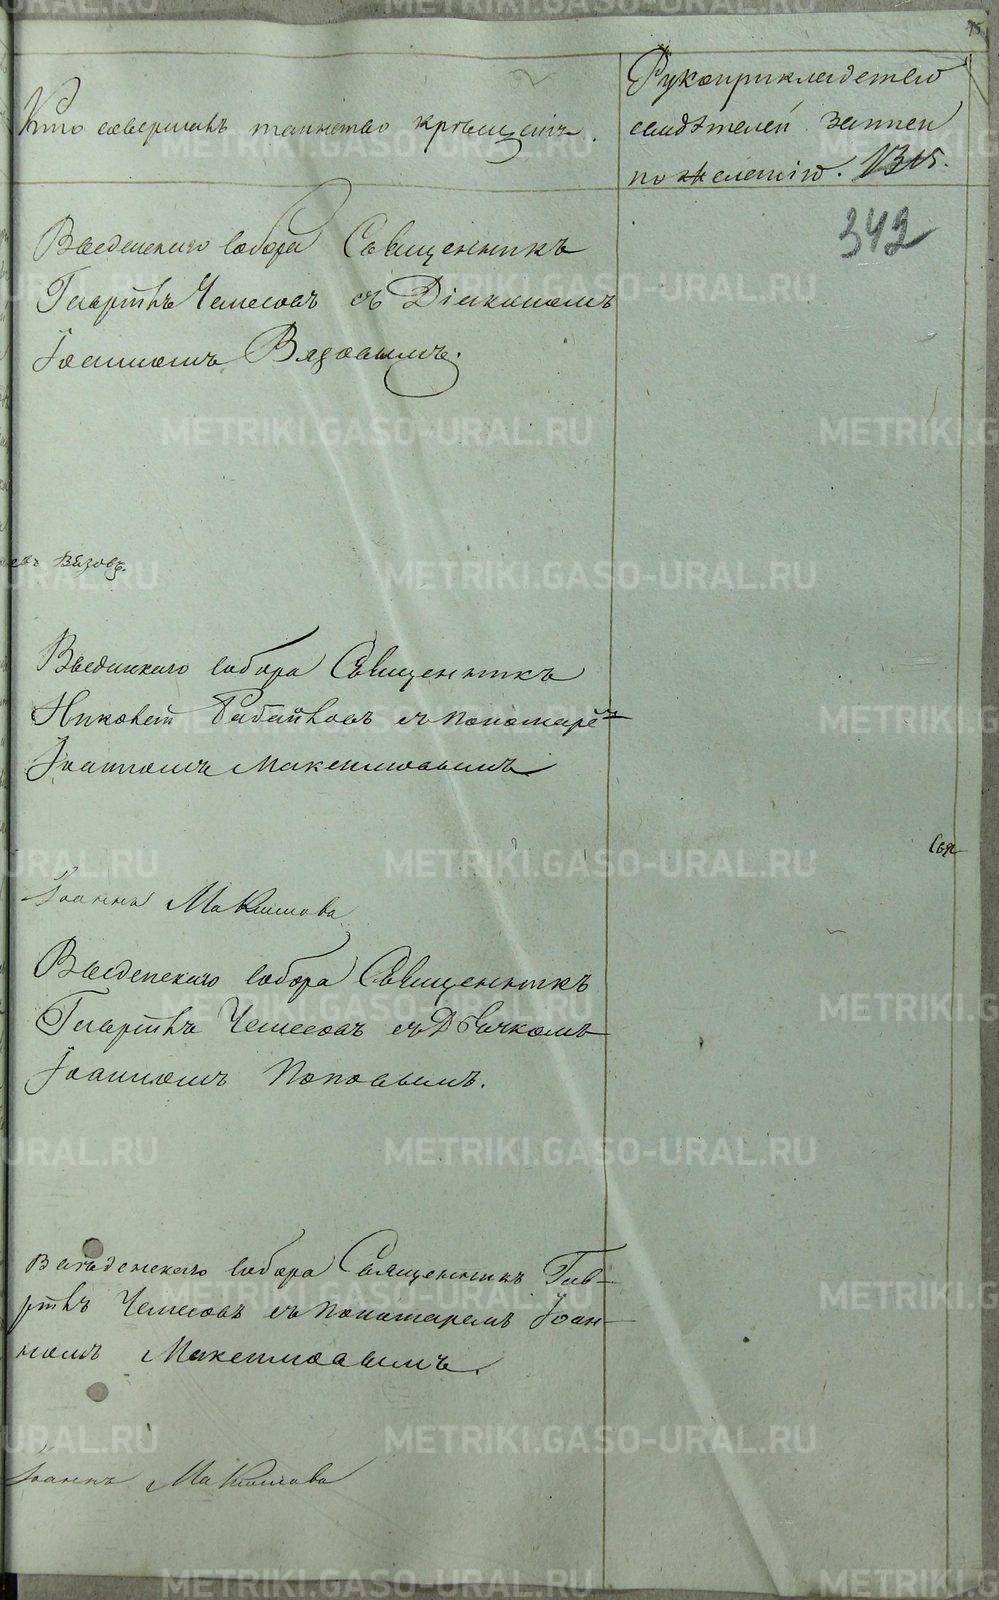 75
Кто совершалъ таинство крещенiя.
Рукоприкладство
свидѣтелей записи
по желанiю.
342
Введенскаго собора Священникъ
Гаврiилъ Чемесовъ съ Дiакономъ
Iоанномъ Вязовымъ.
Вязовъ.
Введенскаго собора Священникъ
съ пономаремъ
Iоанномъ Максимовымъ
Iоаннъ Максимовъ
Введенскаго собора Священникъ
Гаврiилъ Чемесовъ съ Дьячкомъ
Iоанномъ Поповымъ.
Введенскаго собора Священникъ Гав-
рiилъ Чемесовъ съ пономаремъ Iоан-
номъ Максимовымъ.
Iоаннъ Максимовъ
METRIKI.GASO-URAL.RU